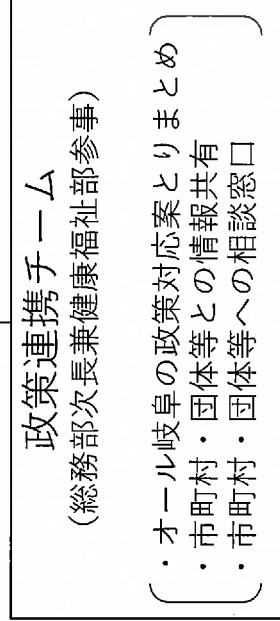 政策連携チーム
（総務部次長兼健康福祉部参事）
・オール岐阜の政策対応案とりまとめ
・市町村・団体等との情報共有
・市町村・団体等への相談窓口